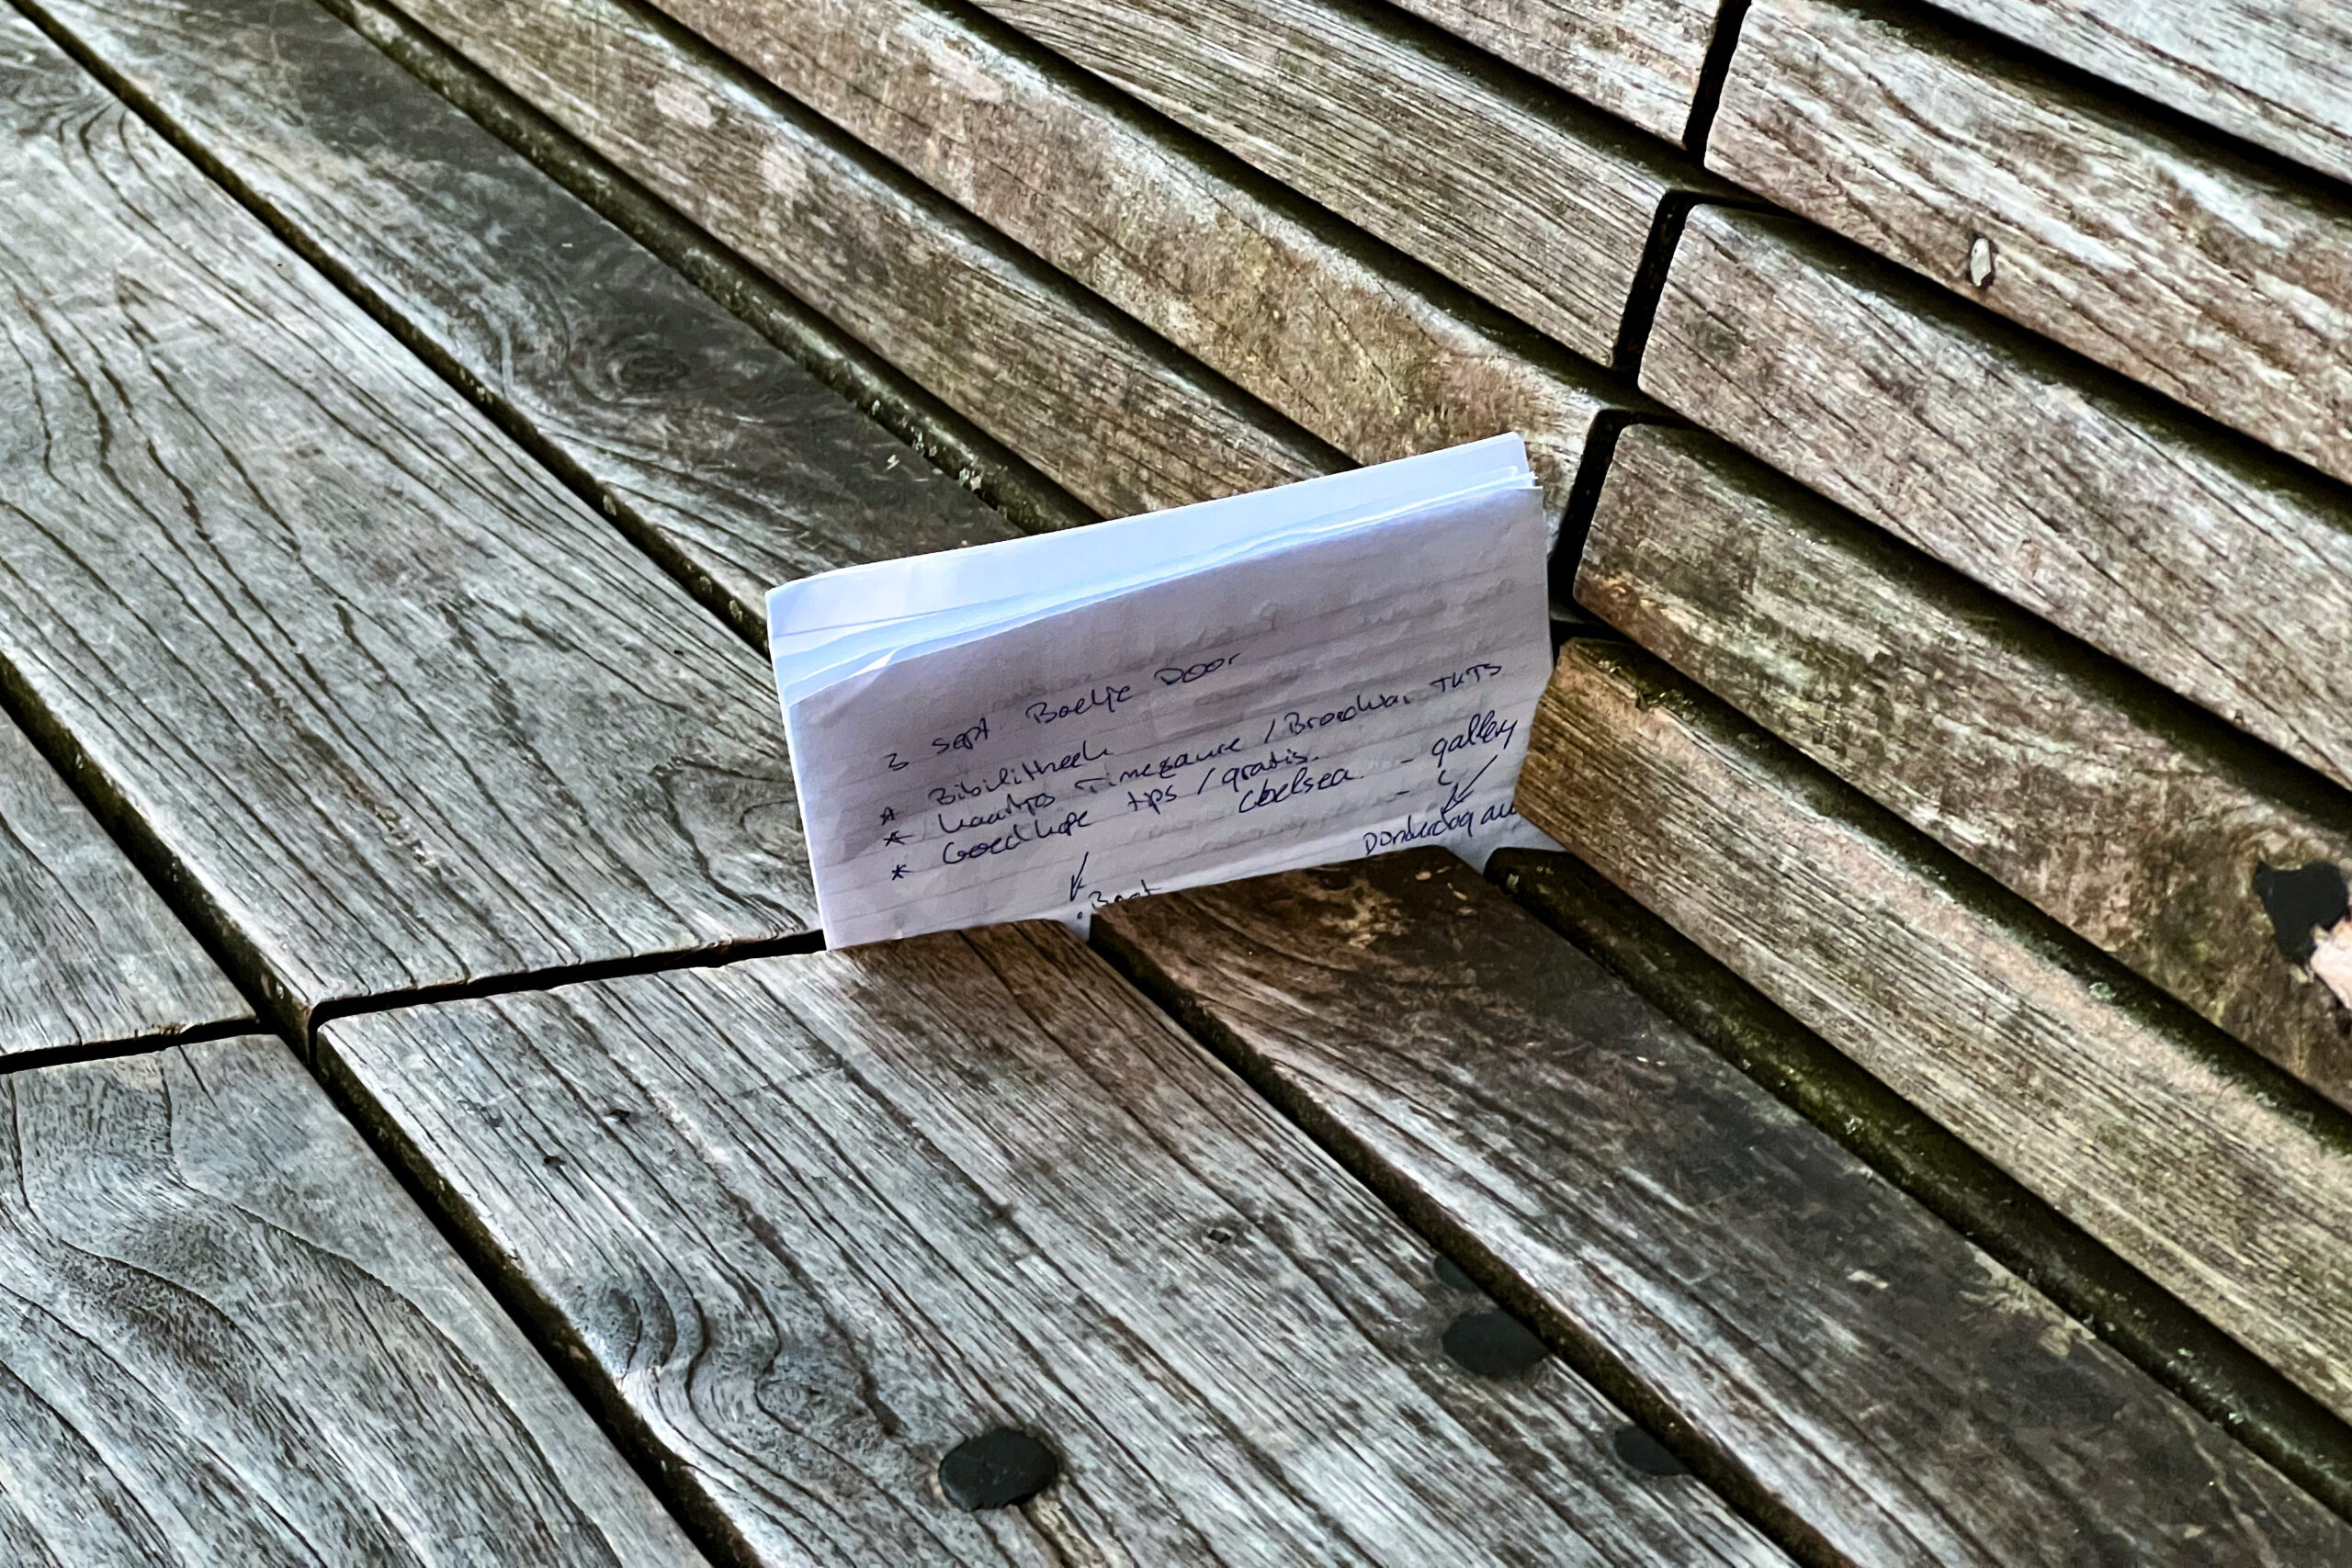 3 sept. Boekje Door
* Bibilitheek
* kaartjes Timesquare / Broadway TKTS
* Goedkope tips / gratis.
Chelsea - gallery
Donderdag
• Boot